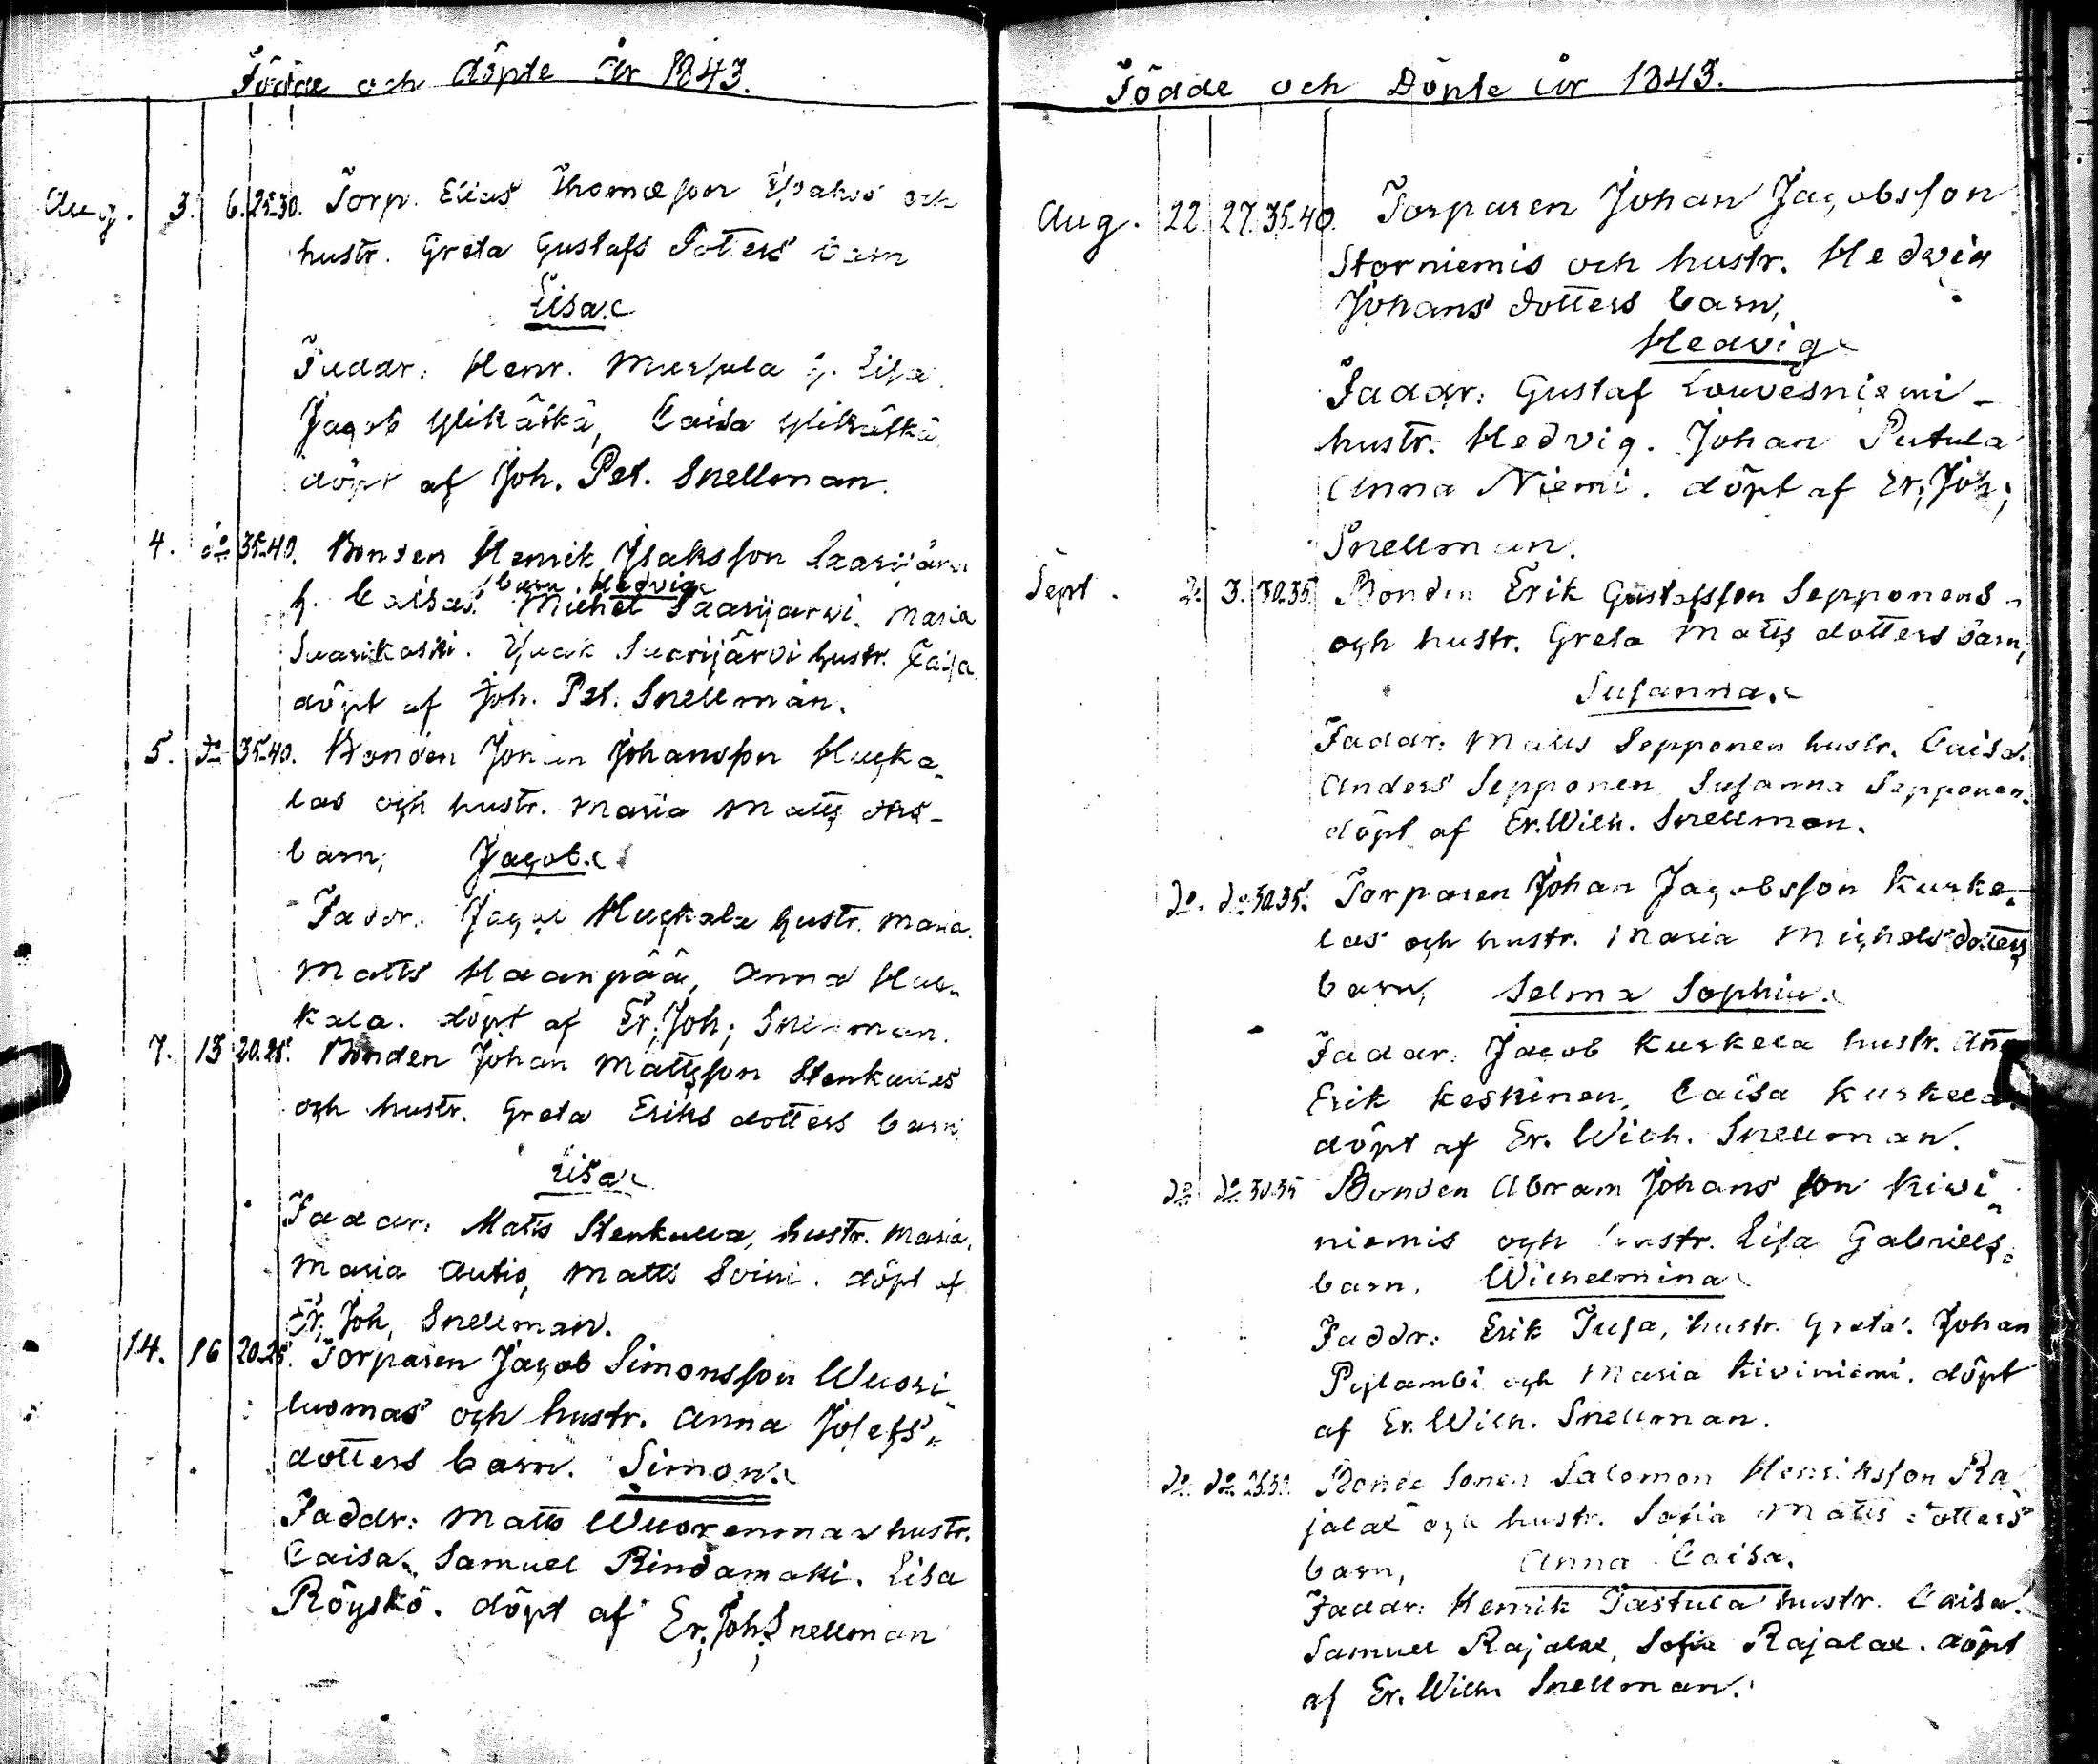 Födde och döpte år 1843.
Aug. 3. 6. 25.30. Torp. Elias Thomæsson och
hustr. Greta Gustafs dotters barn
Lisa.
Faddr: Henr. h. Lisa
Jacob Ylikätkä, Caisa Ylikätkä
döpt af Joh. Pet. Snellman.
4. do 35.40. Bonden Henrik Isaksson Saarijärvi
barn. Hedvig
h. Caisas. Michel Saarijarvi. Maria
Saarikoski. Isaak Saarijärvi hustr. Caisa
döpt af Joh. Pet. Snellman.
5. do 35.40. Bonden Johan Johansson Huska-
las och hustr. Maria Matts drs-
barn, Jacob.
Faddr. Jacob Huskala hustr. Maria.
Matts Haanpää, Anna Hus-
kala. döpt af Er. Joh; Snellman.
7. 13 20.25. Bonden Johan Mattsson Stenkulles
och hustr. Greta Eriks dotters barn.
Lisa
Faddr. Matts Stenkulla, hustr. Maria.
Maria Autio, Matts Soini. döpt af
Er, Joh, Snellman.
14. 16 20.25. Torparen Jacob Simonsson Wuori-
luomas och hustr. Anna Josefs-
dotters barn. Simon.
Faddr: Matts Wuorenmaa hustr.
Caisa. Samuel Rindamaki. Lisa
Röyskö. döpt af Er; Joh; Snellman
Födde och Döpte år 1843.
Aug. 22. 27. 35.40. Torparen Johan Jacobsson
Storniemis och hustr. Hedvig
Johans dotters barn,
Hedvig
Faddr: Gustaf Louvesniemi-
hustr. Hedvig. Johan Putula
Anna Niemi. döpt af Er; Joh;
Snellman.
Sept. 2. 3. 30.35. Bonden Erik Gustafsson Sepponens-
och hustr. Greta Matts dotters barn,
Susanna.
Faddr: Matts Sepponen hustr. Caisa.
Anders Sepponen Susanna Sepponen.
döpt af Er. Wilh. Snellman.
do. do 30.35. Torparen Johan Jacobsson Kuske-
las och hustr. Maria Michelsdotters
barn, Selma Sophia.
Faddr: Jacob Kuskela hustr.
Erik Keskinen, Caisa Kuskela.
döpt af Er. Wilh. Snellman.
do do 30.35 Bonden Abram Johansson Kivi-
niemis och hustr. Lisa Gabriels-
barn. Wilhelmina
Faddr: Erik Tusa, hustr. Greta. Johan
Pyylambi och Maria Kiviniemi. döpt
af Er. Wilh. Snellman.
do. do. 25.30. Bonde sonen Salomon Henriksson Ra-
jalae och hustr. Sofia Matts dotters
barn, Anna Caisa.
Faddr: Henrik Pastula hustr. Caisa.
Samuel Rajalae, Sofia Rajalae. döpt
af Er. Wilh. Snellman.